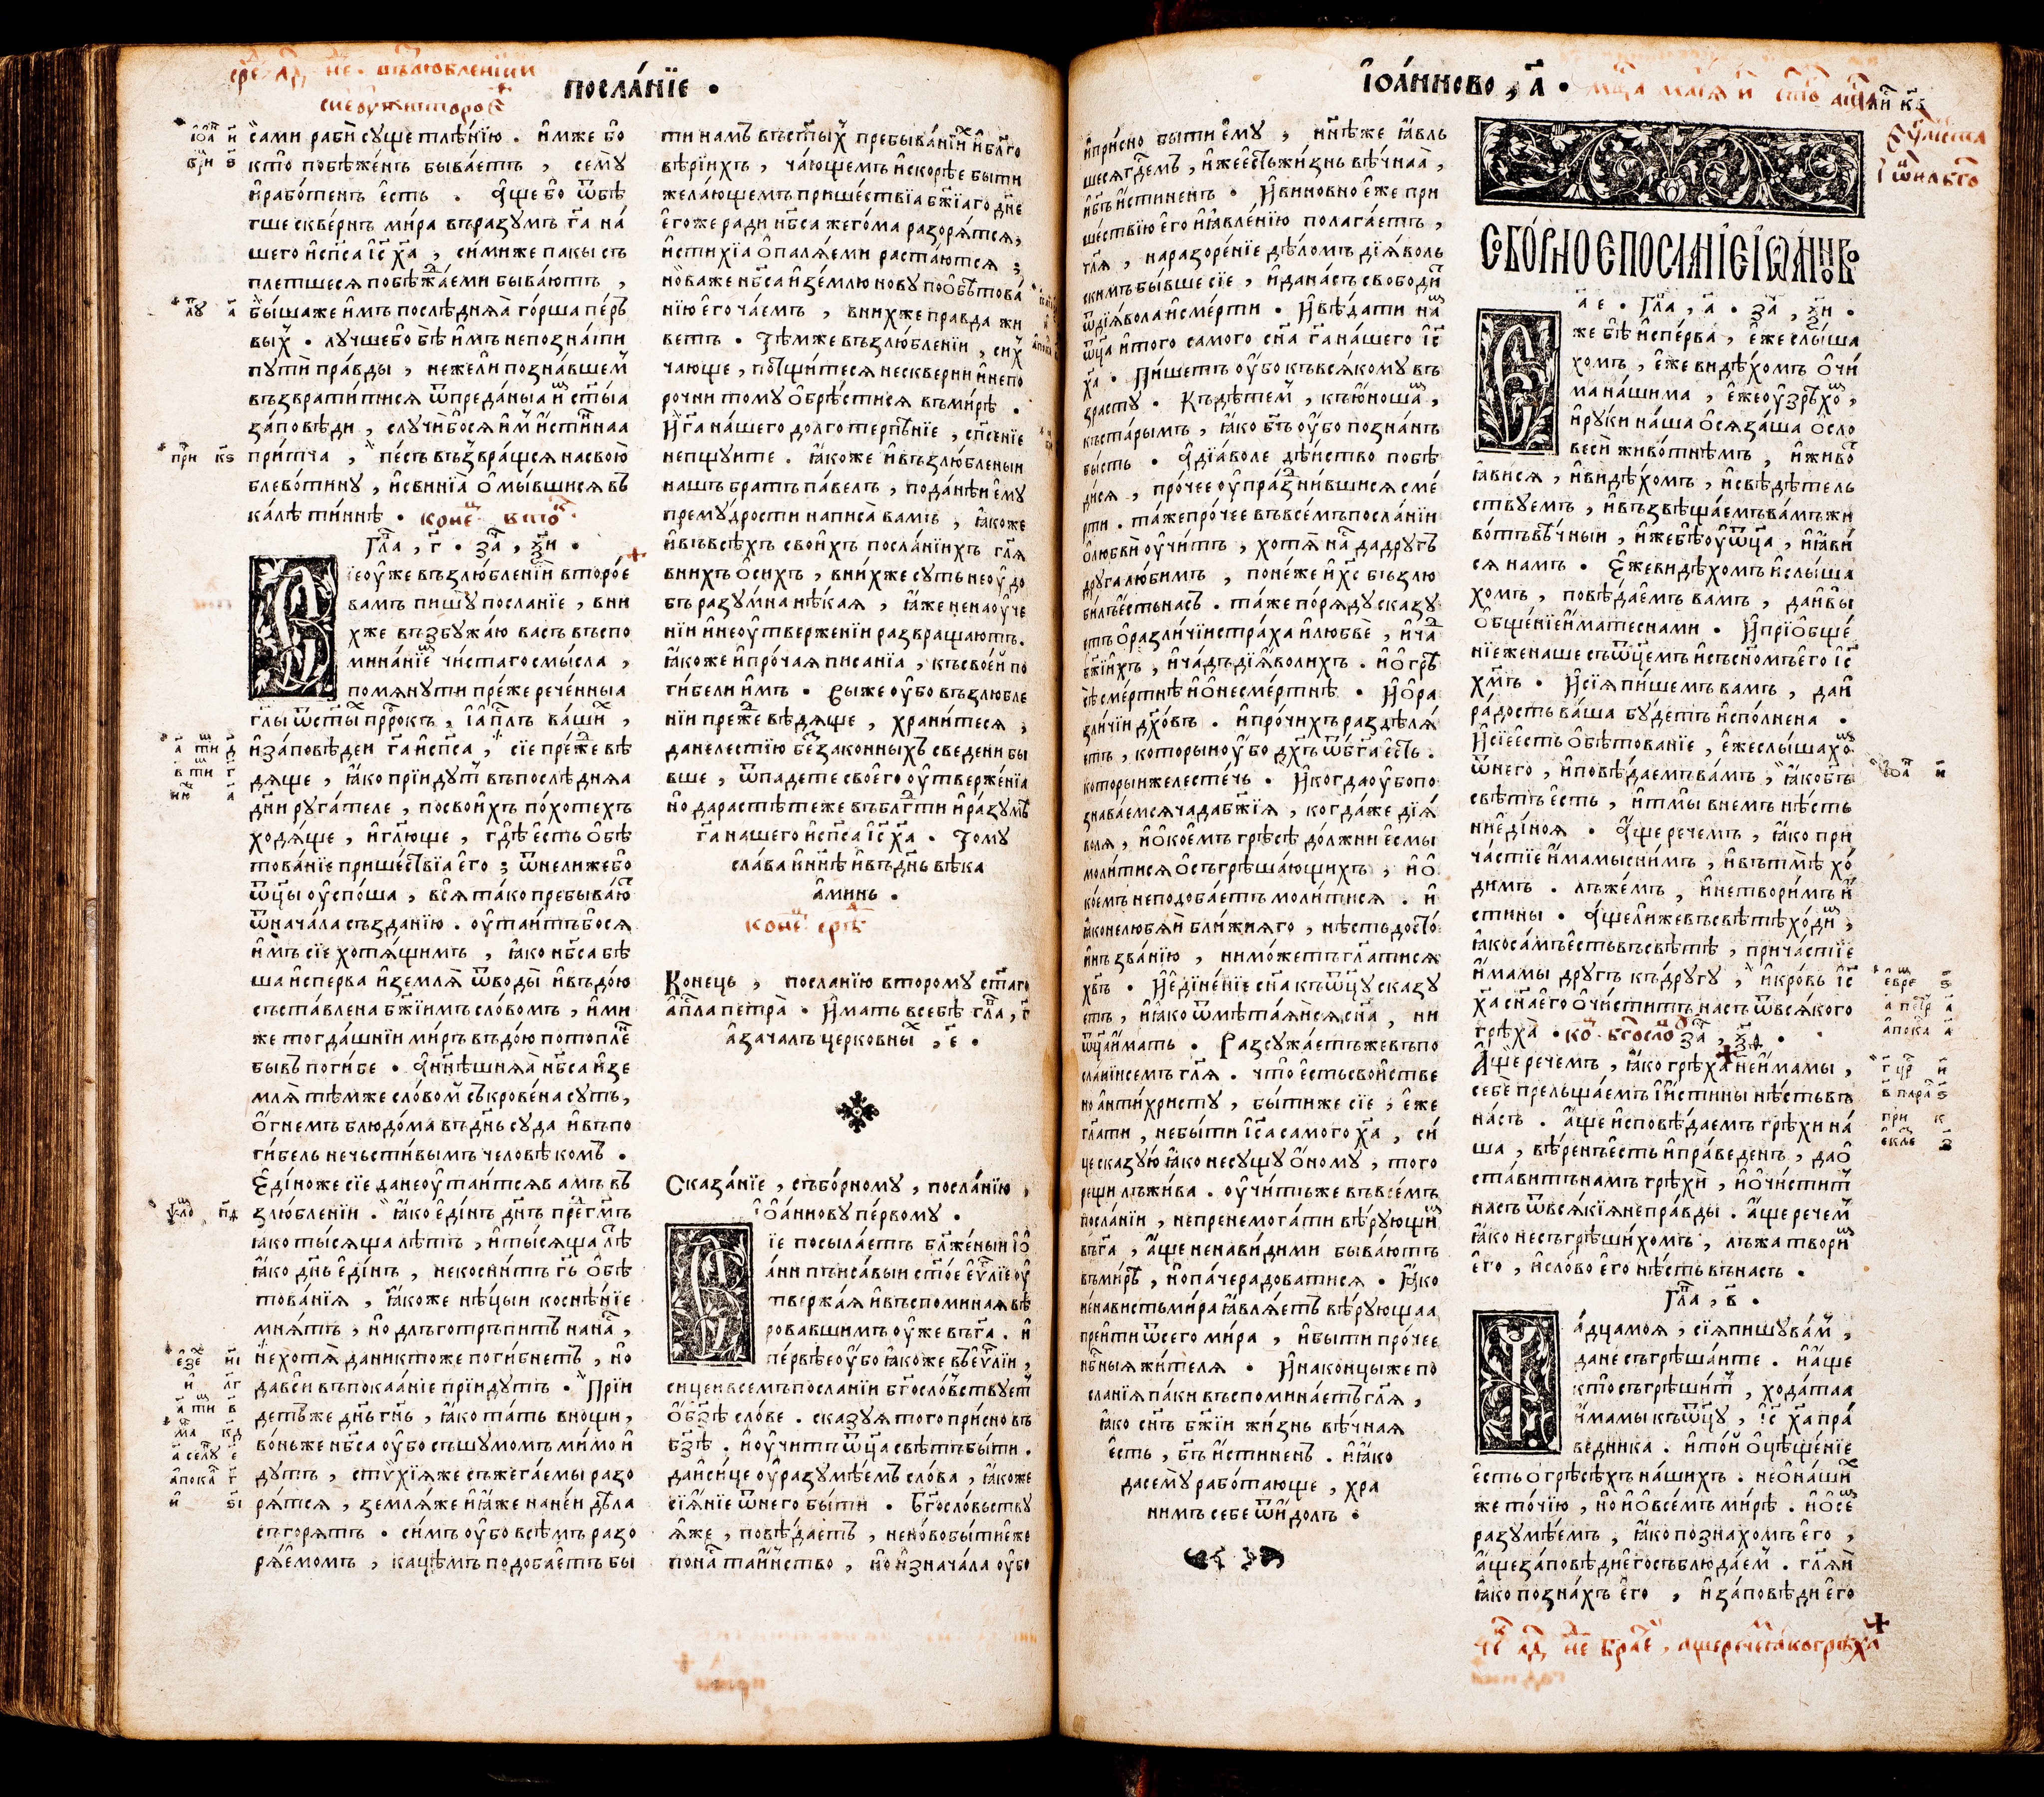 посла́нїе .
са́ми рабѝ су́ще тлѣ́нїю . и҆мже бо
кто̀ побѣже́нъ быва́етъ , семꙋ̀
и҆ рабо́тенъ е҆сть . а҆ще бо ѿбѣ
гше скве́рнъ ми́ра въ ра́зумъ г҃а на́
шего и҆ сп҃са і҆с х҃а , си́миже па́кы съ
плетшеся побѣжа́еми быва́ютъ ,
бы́ша же и҆мъ послѣ́дняа го́рша пе́рв
вы́х . лу́чше бо бѣ̀ и҆мъ не позна́ти
путѝ пра́вды , не́жели позна́вшем
възврати́тися ѿ преда́ныа и҆м ст҃ы́а
за́повѣди , случи́ бося и҆м и҆́стиннаа
при́тча , пе́съ възвра́щся на свою̀
блево́тину , и҆ свинїа̀ ѡ҆мы́вшися въ
ка́лѣ ти́ннѣ . коне́ц вто́к
Гла , г҃ . за , ѯ҃и .
Сїе ѹ҆же възлю́бленїи второ́е
вамъ пишꙋ̀ посла́нїе , в ни
хже възбужа́ю ва́съ въспо
мина́нїем чи́стаго смы́сла ,
помянꙋ́ти пре́же рече́нныа
гл҃ы ѿ ст҃ых прⷪро́къ , і҆ а҆пл҃ъ ва́ших ,
и҆ за́повѣдеи г҃а и҆ сп҃са , сїе пре́же вѣ
дяще , ꙗ҆́ко прїи́дут въ послѣ́дняа
дн҃и руга́теле , по свои́хъ по́хотехъ
ходя́ще , и҆ гл҃юще , гдѣ̀ е҆́сть ѡ҆бѣ
това́нїе прише́ствїа е҆го̀ ; ѿнели́же бо
ѿц҃ы ѹ҆спо́ша , вся̀ та́ко пребыва́ют
ѿ нача́ла създа́нїю . ѹ҆таи́тъ бося
и҆́мъ сїе хотя́щимъ , ꙗ҆́ко нб҃са бѣ
ша и҆спе́рва и҆ земля̀ ѿ воды̀ и҆ въдо́ю
съста́влена бж҃їимъ сло́вомъ , и҆ми
же тогда́шнїи ми́ръ въдо́ю пото́плен
бывъ поги́бе . а҆ ны́нѣшняа нб҃са и҆ зе
мля̀ тѣ́мже сло́вом съкрове́на суть ,
ѡ҆гне́мъ блюдо́ма въ дн҃ь суда̀ и҆ въ по
ги́бель нечьсти́вымъ человѣ́комъ .
Е҆ди́но же сїе да не ѹ҆таи́тся ва́мъ въ
злю́бленїи . ꙗ҆́ко е҆ди́нъ дн҃ь пред г҃мъ
ꙗ҆́ко ты́сяща лѣ́тъ , и҆ ты́сяща лѣ
ꙗ҆́ко дн҃ь е҆ди́нъ , не косни́тъ г҃ь ѡ҆бѣ
това́нїя , ꙗ҆́коже нѣ́цыи косне́нїе
мня́тъ , но̀ длъготръпи́тъ на на́с ,
не хотя̀ да никто́же поги́бнетъ , но̀
да всѝ въ покаа́нїе прїи́дутъ . Прїи
де́тъ же дн҃ь г҃нь , ꙗ҆́ко та́ть в нощи̑ ,
во́ньже нб҃са ѹ҆бо съ шу́момъ ми́мо и҆
ду́тъ , стѵхїя же съжега́емы разо
ря́тся , земля́ же и҆ ꙗ҆́же на не́и дѣ́ла
съгоря́тъ . си́мъ ѹ҆бо всѣ́мъ разо
ря́емомъ , кацѣ́мъ подоба́етъ бы
ти на́мъ въ ст҃ых пребыва́нїих и҆ бл҃го
вѣ́рїихъ , ча́ющемъ и҆ скорѣ́е бы́ти
жела́ющемъ прише́ствїа бж҃їаго дн҃е
е҆го́же ради нб҃са жего́ма разоря́тся ,
и҆ стихїа ѡ҆паля́еми раста́ются ;
но́ва же нб҃са и҆ зе́млю но́ву по ѡ҆бѣтова́
нїю е҆го̀ ча́емъ , в ни́хже пра́вда жи
ветъ . Тѣ́мже възлю́бленїи , си́х
ча́юще , потщи́теся нескве́рни и҆ непо
ро́чни тому̀ ѡ҆брѣ́стися в ми́рѣ .
И҆ г҃а на́шего долготерпѣ́нїе , сп҃се́нїе
непщу́ите . ꙗ҆́коже и҆ възлю́бленыи
на́шъ бра́тъ па́велъ , по да́нѣи е҆му̀
прему́дрости написа̀ ва́мъ , ꙗ҆́коже
и҆ въ всѣ́хъ свои́хъ посла́нїихъ гл҃я
в ни́хъ ѡ҆ си́хъ , в ни́хже суть не ѹ҆до
бъ разу́мна нѣ́кая , ꙗ҆́же ненаѹ҆че
нїи и҆ неѹ҆твержені́и развраща́ютъ .
ꙗ҆́коже и҆ про́чая писа́нїа , къ свое́й по
ги́бели и҆мъ . Вы́ же ѹ҆бо възлю́бле
нїи пре́же вѣ́дяще , храни́теся ,
да не лестїю̀ беззако́нныхъ сведе́ни бы
вше , ѿпаде́те своего̀ ѹ҆твержені́а
но̀ да расте́те же въ блг҃ти и҆ ра́зумѣ
г҃а на́шего и҆ сп҃са і҆с х҃а . Тому̀
сла́ва и҆ нн҃ѣ и҆ въ дн҃ь вѣ́ка
а҆ми́нь .
коне́ц сре́дѣ
Коне́ць , посла́нїю второ́му ст҃а́го
а҆пл҃а петра̀ . И҆ма́ть в себѣ̀ гла , г҃
а҆ зача́лъ церко́вных , е҃ .
Сказа́нїе , събо́рному , посла́нїю ,
і҆ѡа́ннову пе́рвому .
Сїе посыла́етъ бл҃же́ныи і҆ѡ҆
а́ннъ писа́выи ст҃о́е еѵ҃лїе ѹ҆
твержа́я и҆ въспомина́я вѣ
ровавшимъ ѹ҆же въ г҃а . и҆
пе́рвѣе ѹ҆́бо ꙗ҆́коже въ еѵ҃лїи ,
си́це и҆ в се́мъ посла́нїи бг҃осло́вствует
ѡ҆ бз҃ѣ сло́ве . сказу́я того̀ при́сно въ
бз҃ѣ . и҆ ѹ҆чи́тъ ѿц҃а свѣ́тъ бы́ти .
да и҆ си́це ѹ҆разумѣ́емъ сло́ва , ꙗ҆́коже
сїя́нїе ѿ него̀ бы́ти . Бг҃осло́вьству
я́ же , повѣ́даетъ , не но́во бы́ти е҆же
по на́с та́инство , но̀ и҆знача́ла ѹ҆бо
І҆ѡа́нново , а҃ .
и҆ при́сно бы́ти е҆му̀ , нн҃ѣ же ꙗ҆вль
шеся г҃демъ , и҆же е҆сть жи́знь вѣ́чнаа ,
и҆ бг҃ъ и҆́стиненъ . И҆ вино́вно е҆же при
ше́ствїю е҆го̀ и҆ ꙗ҆вле́нїю полага́етъ ,
гл҃я , на разоре́нїе дѣло́мъ дїя́воль
скимъ бы́вше сїе , и҆ да на́съ свободи́т
ѿ дїя́вола и҆ сме́рти . И҆ вѣ́дати на́м
ѿц҃а и҆ того̀ самого̀ сн҃а г҃а на́шего і҆с
х҃а . Пи́шетъ ѹ҆́бо къ вся́кому въ
зра́сту . Къ дѣ́тем , къ ю҆́ноша́м ,
къ ста́рымъ , ꙗ҆́ко бг҃ъ ѹ҆́бо позна́нъ
бы́сть . а҆ дїа́воле дѣ́йство побѣ
ди́ся , про́чее ѹ҆праздни́вшися сме́
рти . та́же про́чее въ все́мъ посла́нїи
ѡ҆ любвѝ ѹ҆чи́тъ , хотя̀ на́с да дру́гъ
дру́га лю́бимъ , поне́же и҆ х҃с възлю
би́лъ е҆сть на́съ . та́же по ря́ду сказу
етъ ѡ҆ разли́чїи стра́ха и҆ любвѐ , и҆ ча́д
бж҃їихъ , и҆ ча́дъ дїя́волихъ . и҆ ѡ҆ грѣ
сѣ сме́ртнѣ и҆ ѡ҆ несме́ртнѣ . И҆ ѡ҆ ра
зли́чїи дх҃о́въ . и҆ про́чихъ раздѣля́
етъ , кото́рыи ѹ҆́бо дх҃ъ ѿ бг҃а е҆сть .
кото́рыи же ле́стечь . И҆ когда̀ ѹ҆бо по
знава́емся ча́да бж҃їя , когда́ же дїя́
воля , и҆ ѡ҆ кое́мъ грѣсѣ̀ до́лжни е҆смы̀
моли́тися ѡ҆ съгрѣша́ющихъ , и҆ ѡ҆
кое́мъ не подоба́етъ моли́тися . и҆
ꙗ҆́ко не любя́й бли́жняго , нѣ́сть досто́
и҆нъ зва́нїю , ни мо́жетъ гл҃атися
хв҃ъ . И҆ е҆дине́нїе сн҃а къ ѿц҃у сказу
етъ , и҆ ꙗ҆́ко ѿмѣта́яися сн҃а , ни
ѿц҃а и҆́мать . Разсужа́етъ же въ по
сла́нїи се́мъ гл҃я . что̀ е҆сть свои́стве
но а҆нти́христу , бы́ти же сїе , е҆же
гл҃ати , не бы́ти і҆с҃а самого̀ х҃а , си́
це сказу́ю ꙗ҆́ко не су́щу ѡ҆́ному , того̀
рещѝ лъжи́ва . ѹ҆чи́тъ же въ все́мъ
посла́нїи , не пренемога́ти вѣ́рующим
въ г҃а , а҆́ще ненави́дими быва́ютъ
въ ми́рѣ , но̀ па́че ра́доватися . ꙗ҆́ко
не́нависть ми́ра ꙗ҆вля́етъ вѣ́рующаа
преитѝ ѿ сего̀ ми́ра , и҆ бы́ти про́чее
нб҃ныя жи́теля . И҆ на коне́ц же по
сла́нїя па́ки въспомина́етъ гл҃я ,
ꙗ҆́ко сн҃ъ бж҃їи жи́знь вѣ́чная
е҆́сть , бг҃ъ и҆́стиненъ . и҆ ꙗ҆́ко
да сему̀ рабо́тающе , хра
ни́мъ себѐ ѿ и҆́долъ .
Собо́рное посла́нїе і҆ѡа́нново
а҃ е . Гла , а҃ . за , ѯ҃и .
Е҆же бѣ̀ и҆спе́рва , е҆́же слы́ша
хомъ , е҆́же ви́дѣхомъ ѡ҆чи́
ма на́шима , е҆́же ѹ҆зрѣ́хом ,
и҆ ру́ки на́ша ѡ҆сяза́ша ѡ҆ сло
весѝ живо́тнѣмъ , и҆ живо́т
ꙗ҆ви́ся , и҆ ви́дѣхомъ , и҆ свѣдѣ́тель
ствуемъ , и҆ възвѣща́емъ ва́мъ жи
во́тъ вѣ́чныи , и҆же бѣ̀ ѹ҆ ѿц҃а , и҆ ꙗ҆ви́
ся на́мъ . Е҆же ви́дѣхомъ и҆ слы́ша
хомъ , повѣ́даемъ ва́мъ , да и҆ вы̀
ѡ҆бще́нїе и҆́мате с на́ми . И҆ прїѡбще́
нїе же на́ше съ ѿц҃емъ и҆ съ сн҃омъ е҆го̀ і҆с
хм҃ъ . И҆ сїя пи́шемъ ва́мъ , да и҆
ра́дость ва́ша бу́детъ и҆спо́лнена .
И҆ сїе е҆́сть ѡ҆бѣтова́нїе , е҆́же слы́шахом
ѿ него̀ , и҆ повѣ́даемъ ва́мъ , ꙗ҆́ко бг҃ъ
свѣ́тъ е҆́сть , и҆ тмы̀ в не́мъ нѣ́сть
ни е҆ди́ноя . а҆́ще рече́мъ , ꙗ҆́ко при
ча́стїе и҆́мамы с ни́мъ , и҆ въ тмѣ̀ хо́
димъ . лъже́мъ , и҆ не твори́мъ и҆́
стины . а҆́ще ли же въ свѣ́тѣ хо́дим ,
ꙗ҆́ко са́мъ е҆́сть въ свѣ́тѣ , прича́стїе
и҆́мамы дру́гъ къ дру́гу , и҆ кро́вь і҆с
х҃а сн҃а е҆го̀ ѡ҆чи́ститъ на́съ ѿ вся́кого
грѣха̀ . ко́ц бг҃осло́ву за , ѯ҃д .
А҆́ще рече́мъ , ꙗ҆́ко грѣха̀ не и҆́мамы ,
себѐ прельща́емъ и҆ и҆́стины нѣ́сть въ
на́съ . а҆́ще и҆сповѣ́даемъ грѣхѝ на́
ша , вѣ́ренъ е҆́сть и҆ пра́веденъ , да ѡ҆
ста́витъ на́мъ грѣхѝ , и҆ ѡ҆чи́стит
на́съ ѿ вся́кїя непра́вды . а҆́ще рече́м
ꙗ҆́ко не съгрѣши́хомъ , лъжа̀ твори́м
е҆го̀ , и҆ сло́во е҆го̀ нѣ́сть въ на́съ .
Гла , в҃ .
Ча́дца моя̀ , сїя̀ пишу̀ ва́м ,
да не съгрѣша́ите . и҆ а҆́ще
кто̀ съгрѣши́т , хода́таа
и҆́мамы къ ѿц҃у , і҆с х҃а пра́
ведника . и҆ то́й ѡ҆цѣще́нїе
е҆́сть ѡ҆ грѣсѣ́хъ на́шихъ . не ѡ҆ на́ших
же то́чїю , но̀ и҆ ѡ҆ все́мъ ми́рѣ . и҆ ѡ҆ се́м
разумѣ́емъ , ꙗ҆́ко позна́хомъ е҆го̀ ,
а҆́ще за́повѣди е҆го̀ съблюда́ем . гл҃яи
ꙗ҆́ко позна́хъ е҆го̀ , и҆ за́повѣди е҆го̀